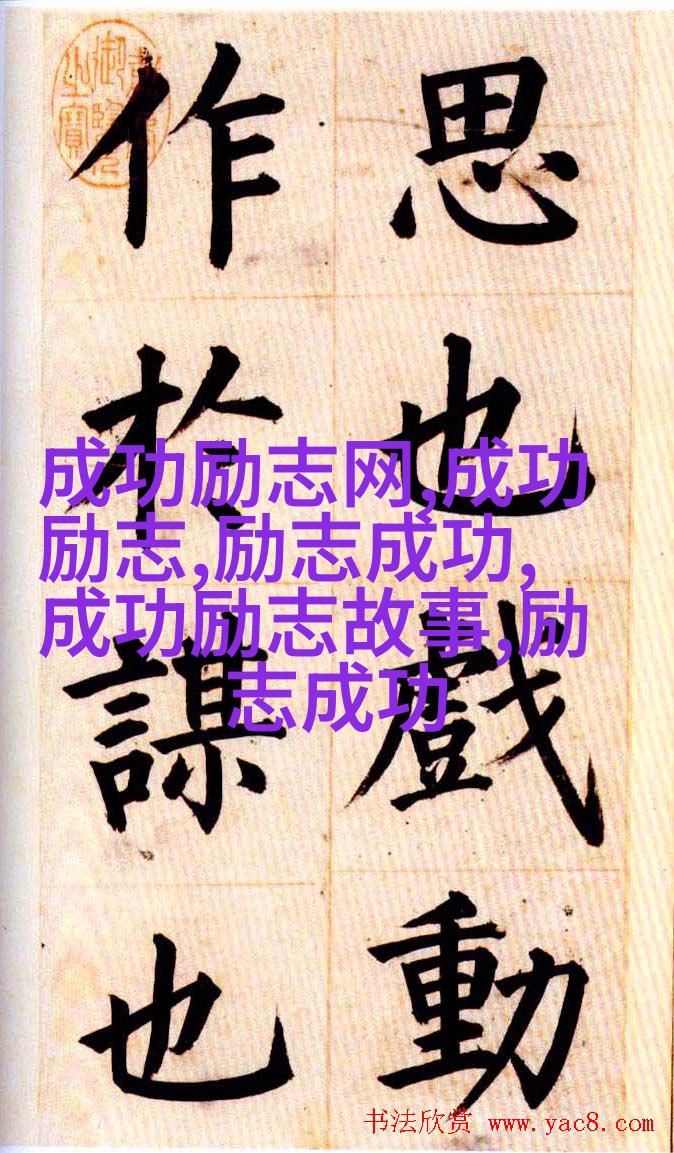 思也戲動
作於謀也
成功励志网,成功
励志,励志成功,
成功励志故事,励
志成功
书法欣赏 www.yac8.com